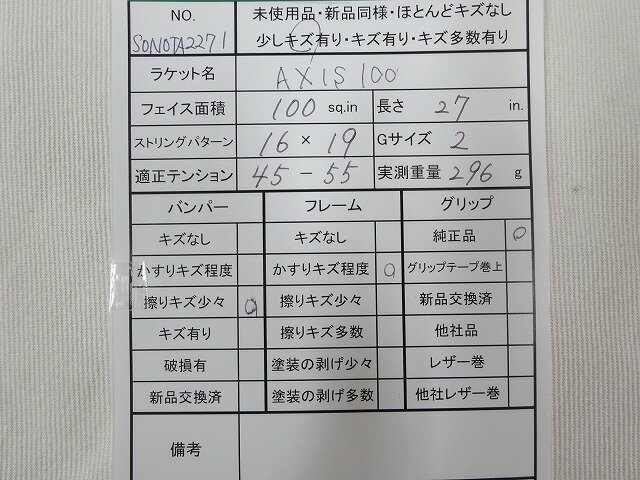 NO.
SONOTA2271
未使用品・新品同様・ほとんどキズなし
少しキズ有り・キズ有り・キズ多数有り
ラケット名 AXIS 100
フェイス面積 100 sq.in 長さ 27 in.
ストリングパターン 16 × 19 Gサイズ 2
適正テンション 45 - 55 実測重量 296 g
バンパー フレーム グリップ
キズなし キズなし 純正品 ○
かすりキズ程度 かすりキズ程度 ○ グリップテープ巻上
擦りキズ少々 ○ 擦りキズ少々 新品交換済
キズ有り 擦りキズ多数 他社品
破損有 塗装の剥げ少々 レザー巻
新品交換済 塗装の剥げ多数 他社レザー巻
備考